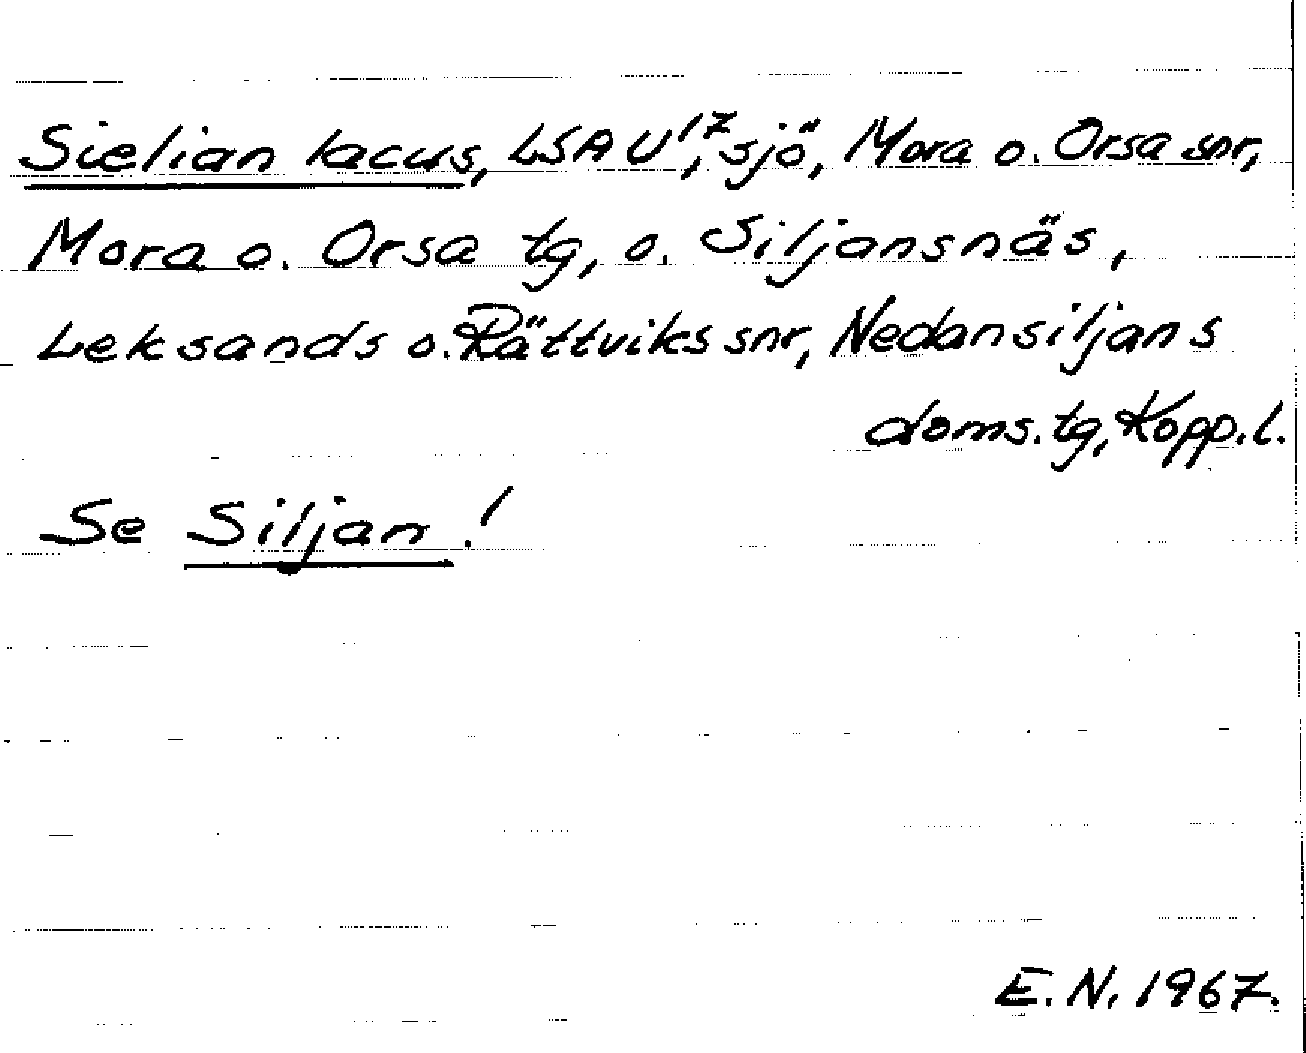 Sielian lacus, LSA U¹⁷, sjö, Mora o. Orsa snr,
Mora o. Orsa tg, o. Siljansnäs,
Leksands o. Rättviks snr, Nedansiljans
doms. tg, Kopp. l.
Se Siljan!
E. N. 1967.